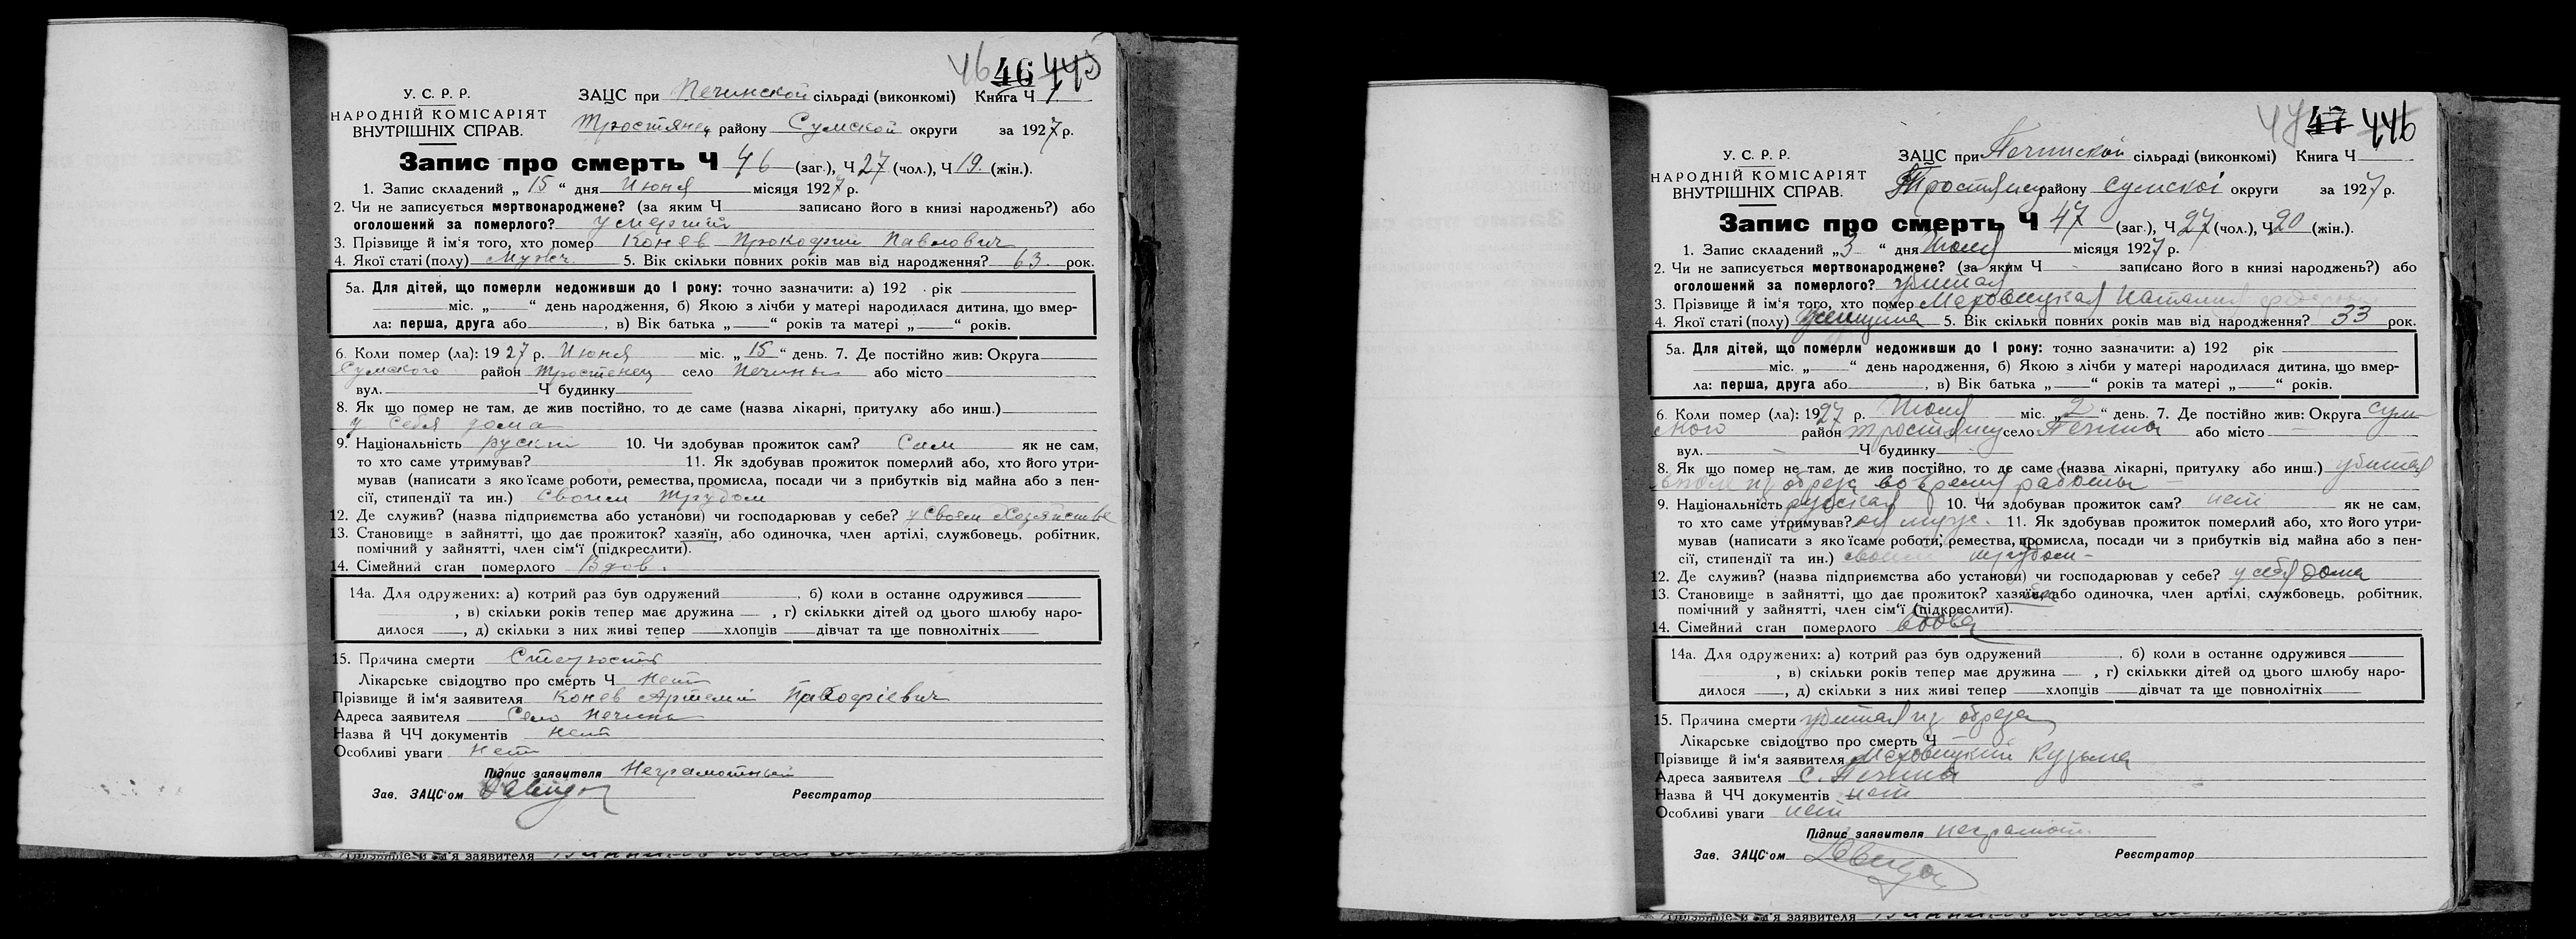 46 46 445
У. С. Р. Р.
НАРОДНІЙ КОМІСАРІЯТ
ВНУТРІШНІХ СПРАВ.
ЗАЦС при Печинской сільраді (виконкомі) Книга Ч 1
Тростянец району Сумской округи за 1927 р.
Запис про смерть Ч 46 (заг.), Ч 27 (чол.), Ч 19. (жін.).
1. Запис складений „ 15 “ дня Июня місяця 1927 р.
2. Чи не записується мертвонароджене? (за яким Ч записано його в книзі народжень?) або
оголошений за померлого? умерший
3. Прізвище й ім‘я того, хто помер Конев Прокофий Павлович
4. Якої статі (полу) Мужч. 5. Вік скільки повних років мав від народження? 63. рок.
5а. Для дітей, що померли недоживши до 1 року: точно зазначити: а) 192 рік
міс. „ “ день народження, б) Якою з лічби у матері народилася дитина, що вмер-
ла: перша, друга або , в) Вік батька „ “ років та матері „ “ років.
6. Коли помер (ла): 1927 р. Июня міс. „ 15 “ день. 7. Де постійно жив: Округа
Сумского район Тростенец село Печины або місто
вул. Ч будинку
8. Як що помер не там, де жив постійно, то де саме (назва лікарні, притулку або инш.)
у себя дома
9. Національність руский 10. Чи здобував прожиток сам? Сам як не сам,
то хто саме утримував? 11. Як здобував прожиток померлий або, хто його утри-
мував (написати з якої саме роботи, ремества, промисла, посади чи з прибутків від майна або з пен-
сії, стипендії та ин.) своим трудом
12. Де служив? (назва підприємства або установи) чи господарював у себе? у своем хозяйстве
13. Становище в зайнятті, що дає прожиток? хазяїн, або одиночка, член артілі, службовець, робітник,
помічний у зайнятті, член сім‘ї (підкреслити).
14. Сімейний стан померлого Вдов.
14а. Для одружених: а) котрий раз був одружений , б) коли в останнє одружився
, в) скільки років тепер має дружина , г) скількки дітей од цього шлюбу наро-
дилося , д) скільки з них живі тепер хлопців дівчат та ще повнолітніх
15. Причина смерти Старость
Лікарське свідоцтво про смерть Ч Нет
Прізвище й ім‘я заявителя Конев Артемий
Адреса заявителя Село Печины
Назва й ЧЧ документів Нет
Особливі уваги Нет
Підпис заявителя Неграмотный
Зав. ЗАЦС‘ом Реєстратор
47 47 446
У. С. Р. Р.
НАРОДНІЙ КОМІСАРІЯТ
ВНУТРІШНІХ СПРАВ.
ЗАЦС при Печинской сільраді (виконкомі) Книга Ч
району Сумской округи за 1927 р.
Запис про смерть Ч 47 (заг.), Ч 27 (чол.), Ч 20 (жін.).
1. Запис складений „ 3 “ дня Июля місяця 1927 р.
2. Чи не записується мертвонароджене? (за яким Ч записано його в книзі народжень?) або
оголошений за померлого? убитая
3. Прізвище й ім‘я того, хто помер Маховицкая Наталия
4. Якої статі (полу) женщина 5. Вік скільки повних років мав від народження? 33 рок.
5а. Для дітей, що померли недоживши до 1 року: точно зазначити: а) 192 рік
міс. „ “ день народження, б) Якою з лічби у матері народилася дитина, що вмер-
ла: перша, друга або , в) Вік батька „ “ років та матері „ “ років.
6. Коли помер (ла): 1927 р. Июля міс. „ 2 “ день. 7. Де постійно жив: Округа Сум
ского район село Печины або місто
вул. Ч будинку
8. Як що помер не там, де жив постійно, то де саме (назва лікарні, притулку або инш.) убитая
из обреза во время работы
9. Національність русская 10. Чи здобував прожиток сам? нет як не сам,
то хто саме утримував? 11. Як здобував прожиток померлий або, хто його утри-
мував (написати з якої саме роботи, ремества, промисла, посади чи з прибутків від майна або з пен-
сії, стипендії та ин.) своим трудом
12. Де служив? (назва підприємства або установи) чи господарював у себе? у себя дома
13. Становище в зайнятті, що дає прожиток? хазяїн, або одиночка, член артілі, службовець, робітник,
помічний у зайнятті, член сім‘ї (підкреслити).
14. Сімейний стан померлого вдова
14а. Для одружених: а) котрий раз був одружений , б) коли в останнє одружився
, в) скільки років тепер має дружина , г) скількки дітей од цього шлюбу наро-
дилося , д) скільки з них живі тепер хлопців дівчат та ще повнолітніх
15. Причина смерти убитая из обреза
Лікарське свідоцтво про смерть Ч
Прізвище й ім‘я заявителя Маховицкий Кузьма
Адреса заявителя С. Печины
Назва й ЧЧ документів нет
Особливі уваги нет
Підпис заявителя неграмотн.
Зав. ЗАЦС‘ом Реєстратор